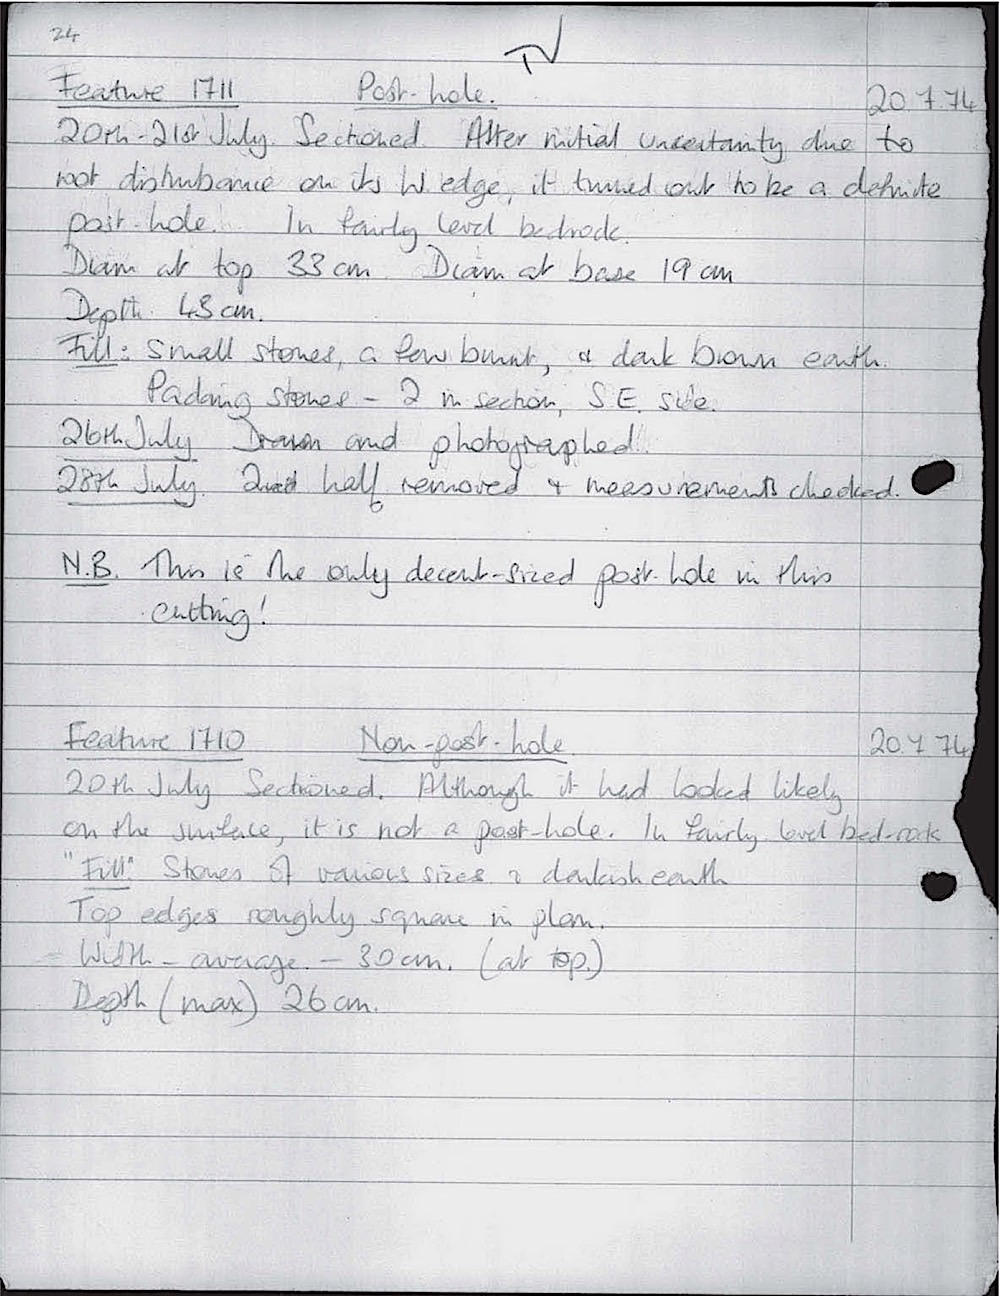 24
Feature 1711 Post-hole. 20.7.74
20th-21st July. Sectioned. After initial uncertainty due to
root disturbance on its W edge, it turned out to be a definite
post-hole. In fairly level bedrock.
Diam at top 33 cm. Diam at base 19 cm
Depth. 43 cm.
Fill: Small stones, a few burnt, & dark brown earth.
Packing stones - 2 in section, S.E. side.
26th July Drawn and photographed.
28th July. 2nd half removed + measurements checked.
N.B. This is the only decent-sized post-hole in this
cutting!
Feature 1710 Non-post-hole 20.7.74
20th July Sectioned. Although it had looked likely
on the surface, it is not a post-hole. In fairly level bed-rock
"Fill": Stones of various sizes & darkish earth
Top edges roughly square in plan.
Width - average - 30 cm. (at top.)
Depth (max) 26 cm.